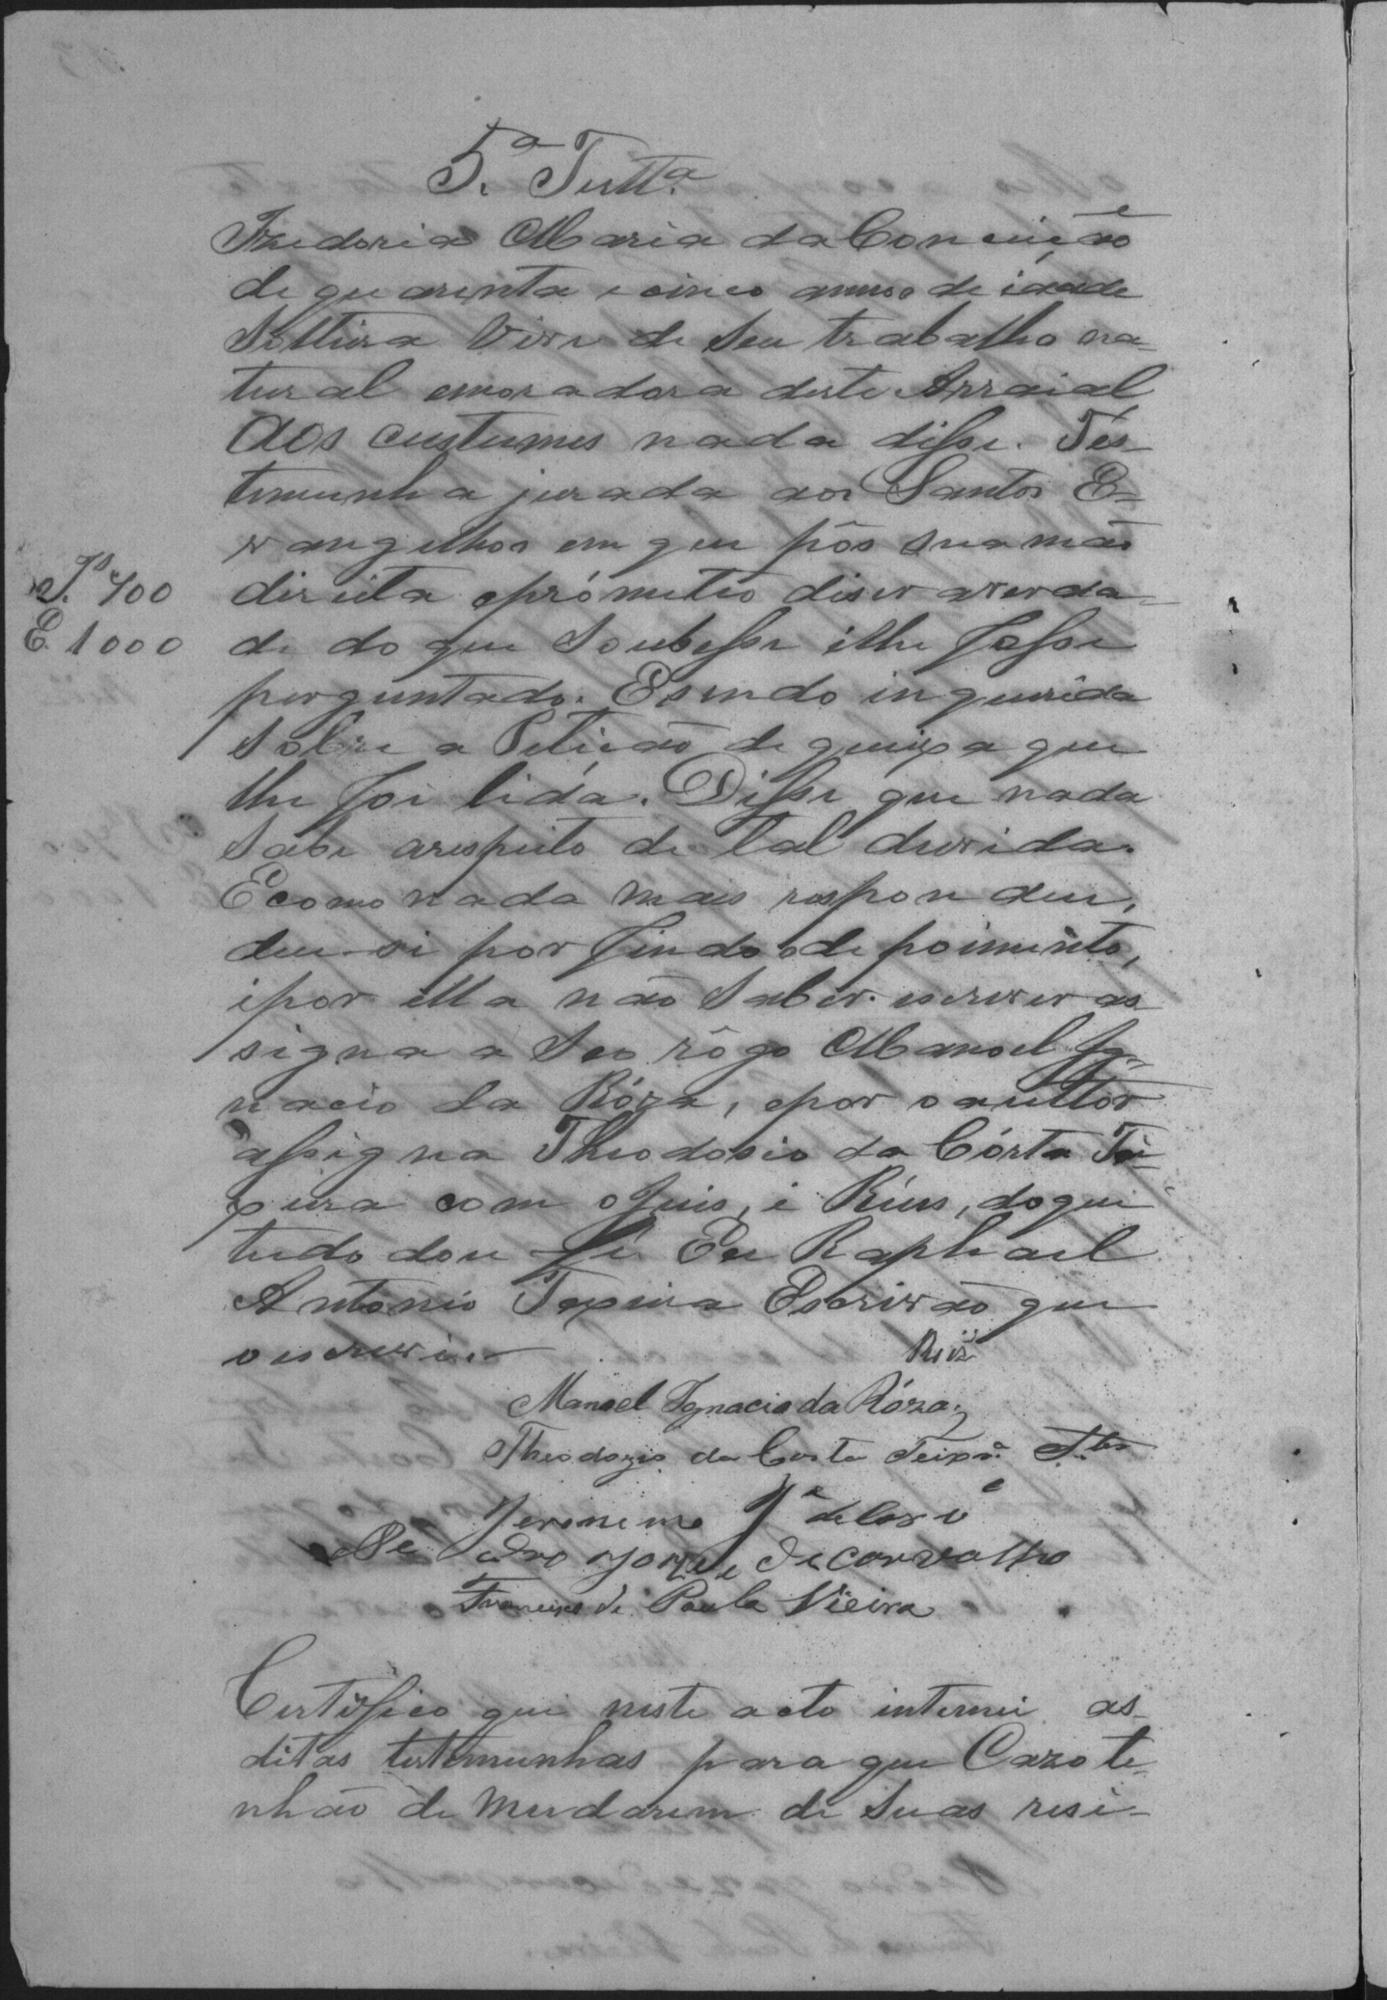 5.ª Testt.ª
Izedoria Maria da Conceicão
de quarenta e cinco annos de idade
Solteira Vive de Seu trabalho na-
tural emoradora deste Arraial
Aos custumes nada disse. Tes-
timunha jurada aos Santos E-
vangelhos em que pôs sua mão
direita eprómeteo diser averda-
de do que Soubesse elhe fosse
perguntado. Esendo inquerida
Sobre a Peticão de queixa que
lhe foi lida. Disse que nada
Sabe arespeito de tal duvida.
Ecomo nada mais respondeu,
deu-si por findo odepoimento,
ipor ella não Saber escrever as
signa a Seo rôgo Manoel Ig-
nacio da Róza, epor oauttor
assigna Theodosio da Córta Tei-
xeira com oJuis, e Réus, doque
tudo dou fé Eu Raphael
Antonio Texeira Escrivão que
oescrevi.
J.ˢ 400
E. 1000
Manoel Ignacio da Róza
Theodozio da Costa Teixr.ª
Jeronimo
Pedro Jozé de Carvalho
Francisco de Paula Vieira
Certifico que neste acto intemei as
ditas testemunhas para que Cazo te-
nhão de Mudarem de Suas resi-